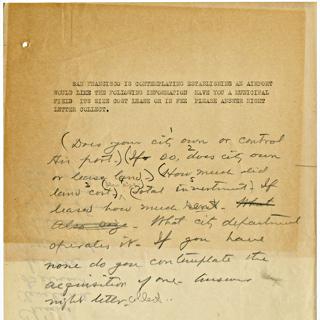 SAN FRANCISCO IS CONTEMPLATING ESTABLISHING AN AIRPORT
WOULD LIKE THE FOLLOWING INFORMATION HAVE YOU A MUNICIPAL
FIELD ITS SIZE COST LEASE OR IN FEE PLEASE ANSWER NIGHT
LETTER COLLECT.
(Does your city own or control
Air port.) (If so, does city own
or lease land.) (How much did
land cost), (total investment). If
leased how much rent. What
Also
What city department
operates it. If you have
none do you contemplate the
acquisition of one. Answer
night letter collect.